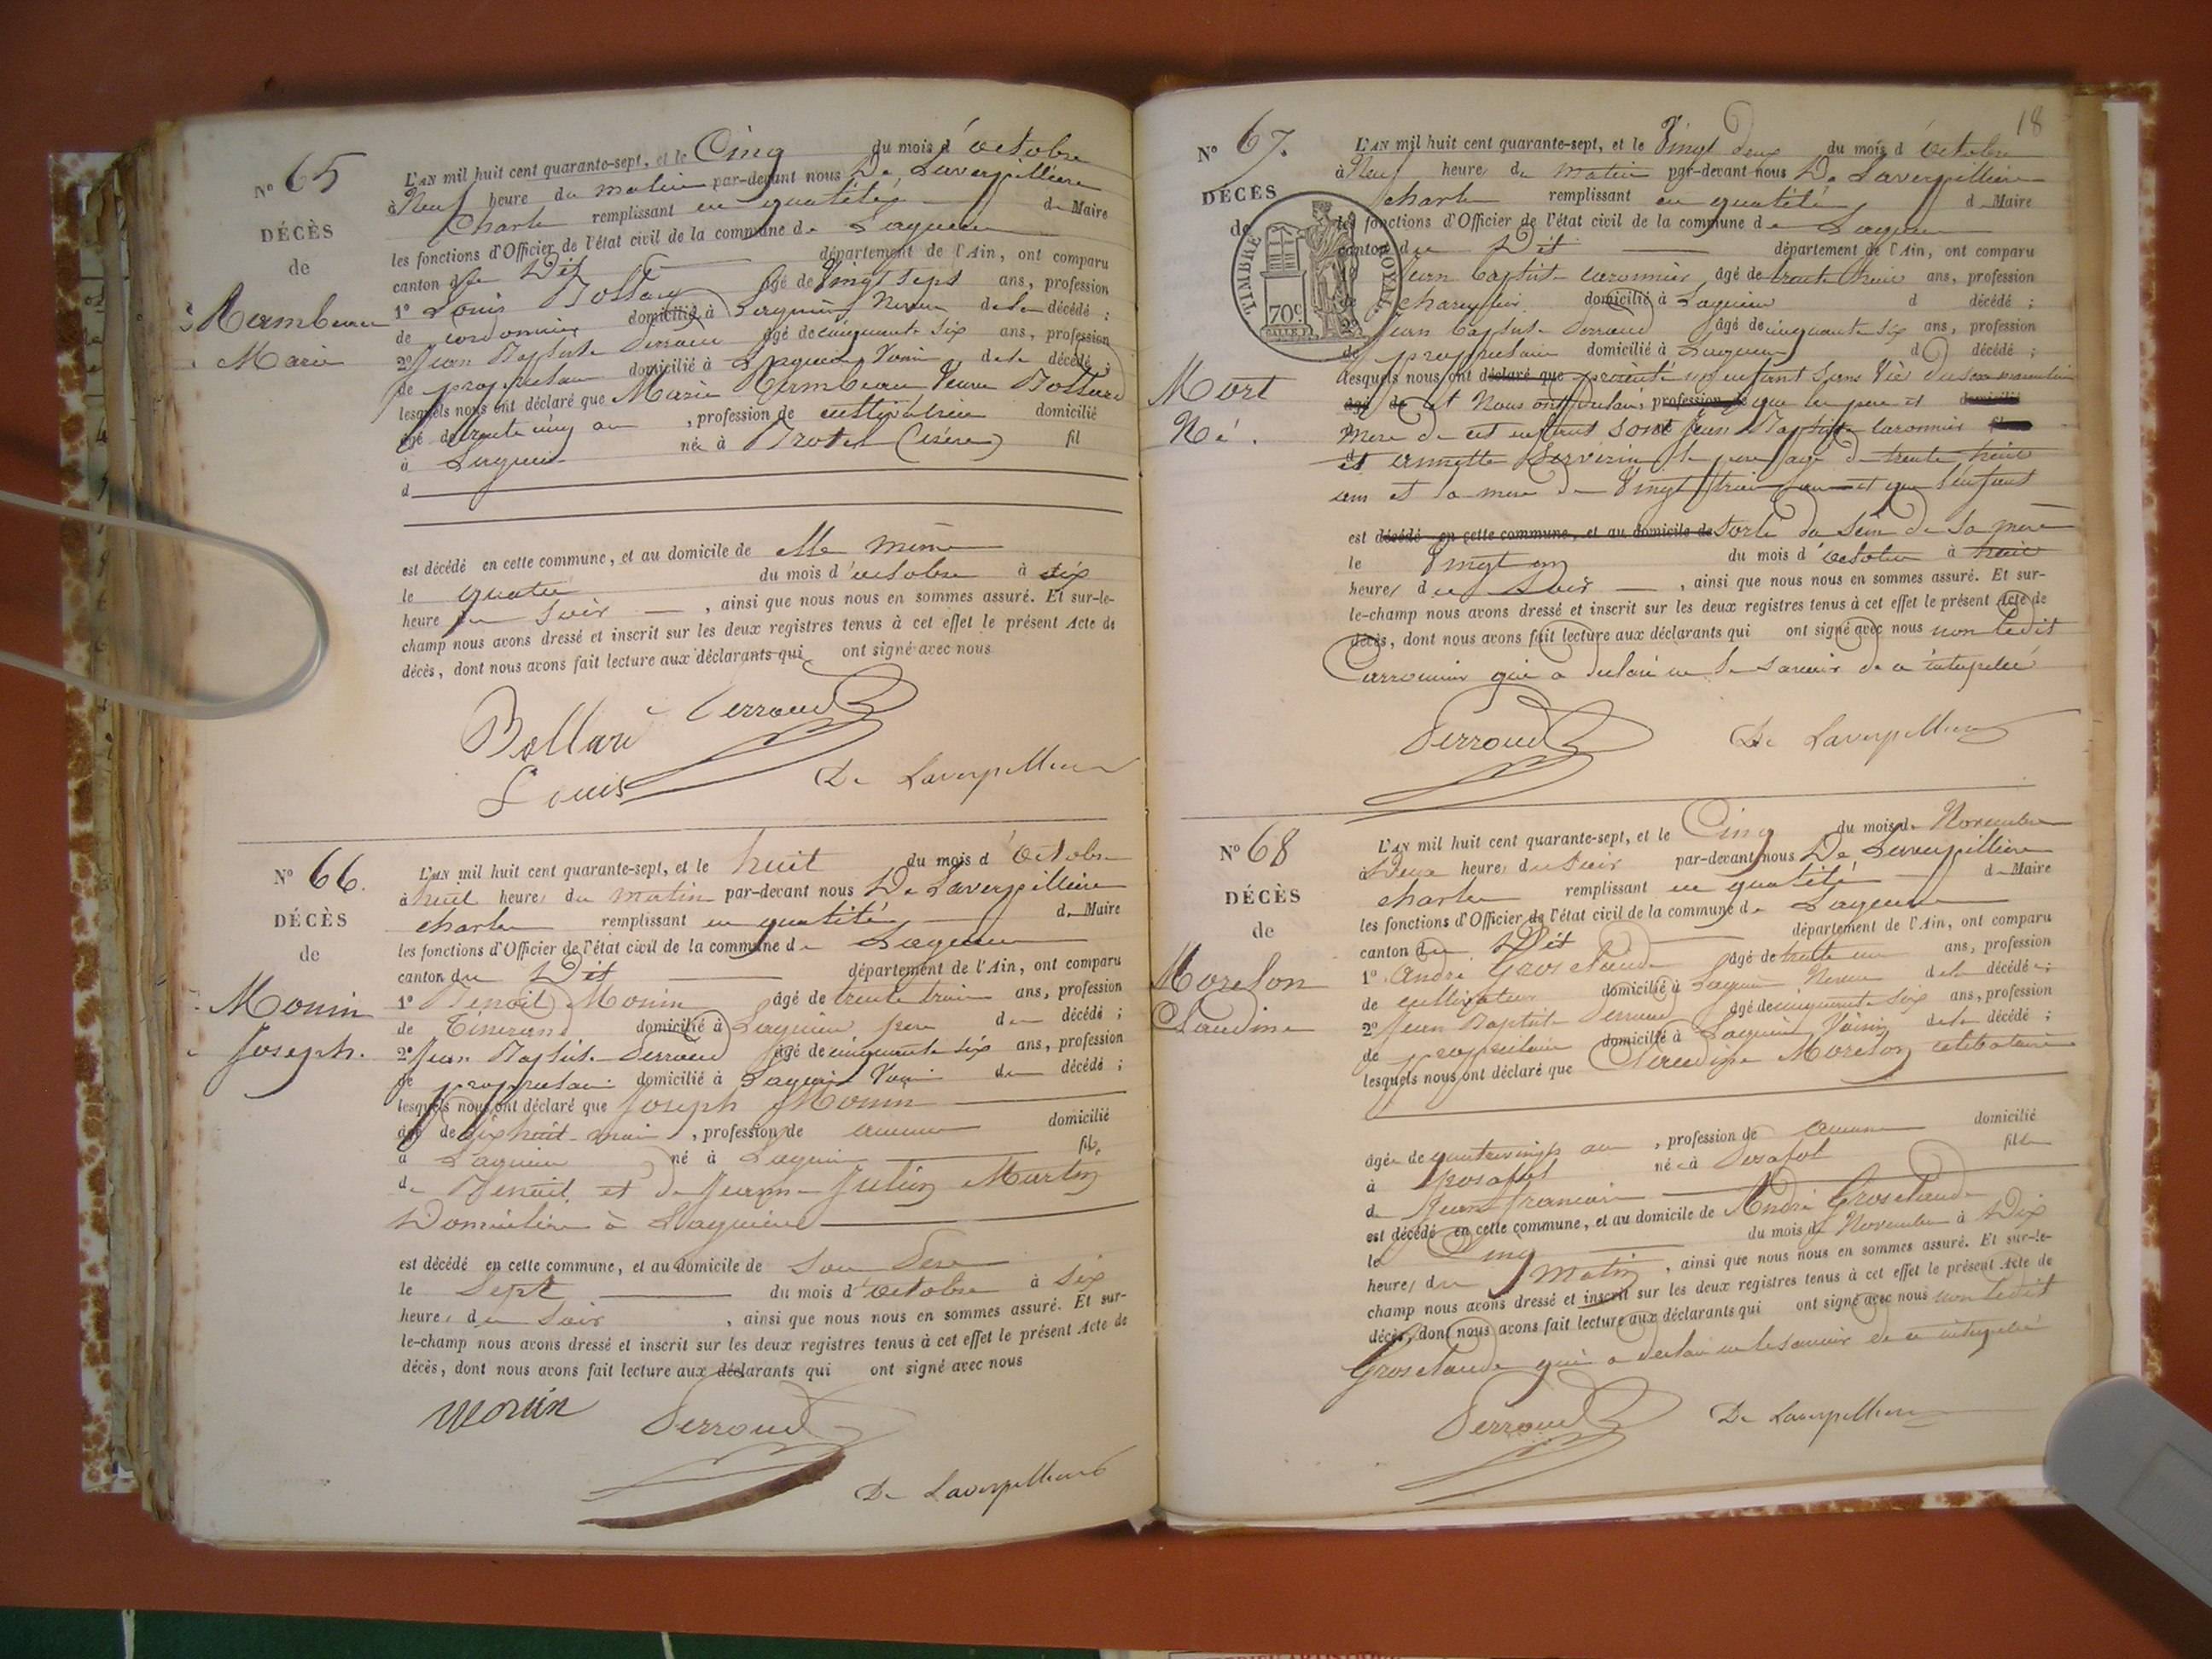 N° 65
DÉCÈS
de
Marie
L'AN mil huit cent quarante-sept, et le Cinq du mois d'octobre
à Neuf heure du matin par-devant nous De Laverpilliere
Charle remplissant en qualité de Maire
les fonctions d'Officier de l'état civil de la commune de Lagnieu
canton de Dit département de l'Ain, ont comparu
1° Louis Bollard âgé de Vingt Sept ans, profession
de cordonnier domicilié à Lagnieu Neveu de la décédé ;
2° Jean Baptiste Perroud âgé de cinquante six ans, profession
de propriétaire domicilié à Lagnieu Voisin de la décédé ;
lesquels nous ont déclaré que Marie Veuve
âgé de , profession de cultivatrice domicilié
à Lagnieu née à (isère) fil
d
est décédé en cette commune, et au domicile de elle même
le quatre du mois d'octobre à six
heure du Soir , ainsi que nous nous en sommes assuré. Et sur-le-
champ nous avons dressé et inscrit sur les deux registres tenus à cet effet le présent Acte de
décès, dont nous avons fait lecture aux déclarants qui ont signé avec nous
Bollard Perroud
Louis De Laverpilliere
N° 66.
DÉCÈS
de
Monin
Joseph.
L'AN mil huit cent quarante-sept, et le huit du mois d'Octobre
à huit heure, du matin par-devant nous De Laverpilliere
charle remplissant en qualité de Maire
les fonctions d'Officier de l'état civil de la commune de Lagnieu
canton du Dit département de l'Ain, ont comparu
1° Benoit Monin âgé de trente trois ans, profession
de Tisserand domicilié à Lagnieu père du décédé ;
2° Jean Baptiste Perroud âgé de cinquante six ans, profession
de propriétaire domicilié à Lagnieu Voisin du décédé ;
lesquels nous ont déclaré que Joseph Monin
âgé de dix huit mois , profession de aucune domicilié
à Lagnieu né à Lagnieu fils
de Benoit et de Jeanne Martin
Domiciliés à Lagnieu
est décédé en cette commune, et au domicile de Son Père
le Sept du mois d'octobre à six
heure, du Soir , ainsi que nous nous en sommes assuré. Et sur-
le-champ nous avons dressé et inscrit sur les deux registres tenus à cet effet le présent Acte de
décès, dont nous avons fait lecture aux déclarants qui ont signé avec nous
monin Perroud
De Laverpilliere
18
N° 67.
DÉCÈS
de
TIMBRE ROYAL
70c
Mort
Né.
L'AN mil huit cent quarante-sept, et le Vingt deux du mois d'octobre
à Neuf heure, du matin par-devant nous De Laverpilliere
charle remplissant en qualité de Maire
les fonctions d'Officier de l'état civil de la commune de Lagnieu
canton du Dit département de l'Ain, ont comparu
Jean Baptiste caronnier âgé de trente huit ans, profession
domicilié à Lagnieu d décédé ;
2° Jean Baptiste Perroud âgé de cinquante six ans, profession
de propriétaire domicilié à Lagnieu d décédé ;
lesquels nous ont déclaré que présenté un enfant sans Vie du sexe masculin
âgé de et Nous ont déclaré profession de que les père et domicilié
mere de cet enfant sont Jean Baptiste caronnier
et annette le pere agé de trente huit
ans et la mere de Vingt trois ans et que l'enfant
est décédé en cette commune, et au domicile de Sorti du sein de sa mère
le Vingt un du mois d'octobre à huit
heure, du Soir , ainsi que nous nous en sommes assuré. Et sur-
le-champ nous avons dressé et inscrit sur les deux registres tenus à cet effet le présent Acte de
décès, dont nous avons fait lecture aux déclarants qui ont signé avec nous non ledit
Carronnier qui a déclaré ne le savoir de ce interpelé
Perroud De Laverpilliere
N° 68
DÉCÈS
de
Morelon
Claudine
L'AN mil huit cent quarante-sept, et le Cinq du mois de Novembre
à Deux heure, du Soir par-devant nous De Laverpilliere
charle remplissant en qualité de Maire
les fonctions d'Officier de l'état civil de la commune de Lagnieu
canton du Dit département de l'Ain, ont comparu
1° André Grosclaude âgé de trente un ans, profession
de cultivateur domicilié à Lagnieu Neveu de la décédée ;
2° Jean Baptiste Perroud âgé de cinquante six ans, profession
de propriétaire domicilié à Lagnieu Voisin de la décédé ;
lesquels nous ont déclaré que Claudine Morelon célibataire
âgée de quatrevingts ans , profession de aucune domicilié
à Posafol née à Posafol fille
de Jean francois
est décédé en cette commune, et au domicile de André Grosclaude
le Cinq du mois de Novembre à Dix
heure, du Matin , ainsi que nous nous en sommes assuré. Et sur-le-
champ nous avons dressé et inscrit sur les deux registres tenus à cet effet le présent Acte de
décès, dont nous avons fait lecture aux déclarants qui ont signé avec nous non ledit
Grosclaude qui a déclaré ne le savoir de ce interpelé
Perroud De Laverpilliere